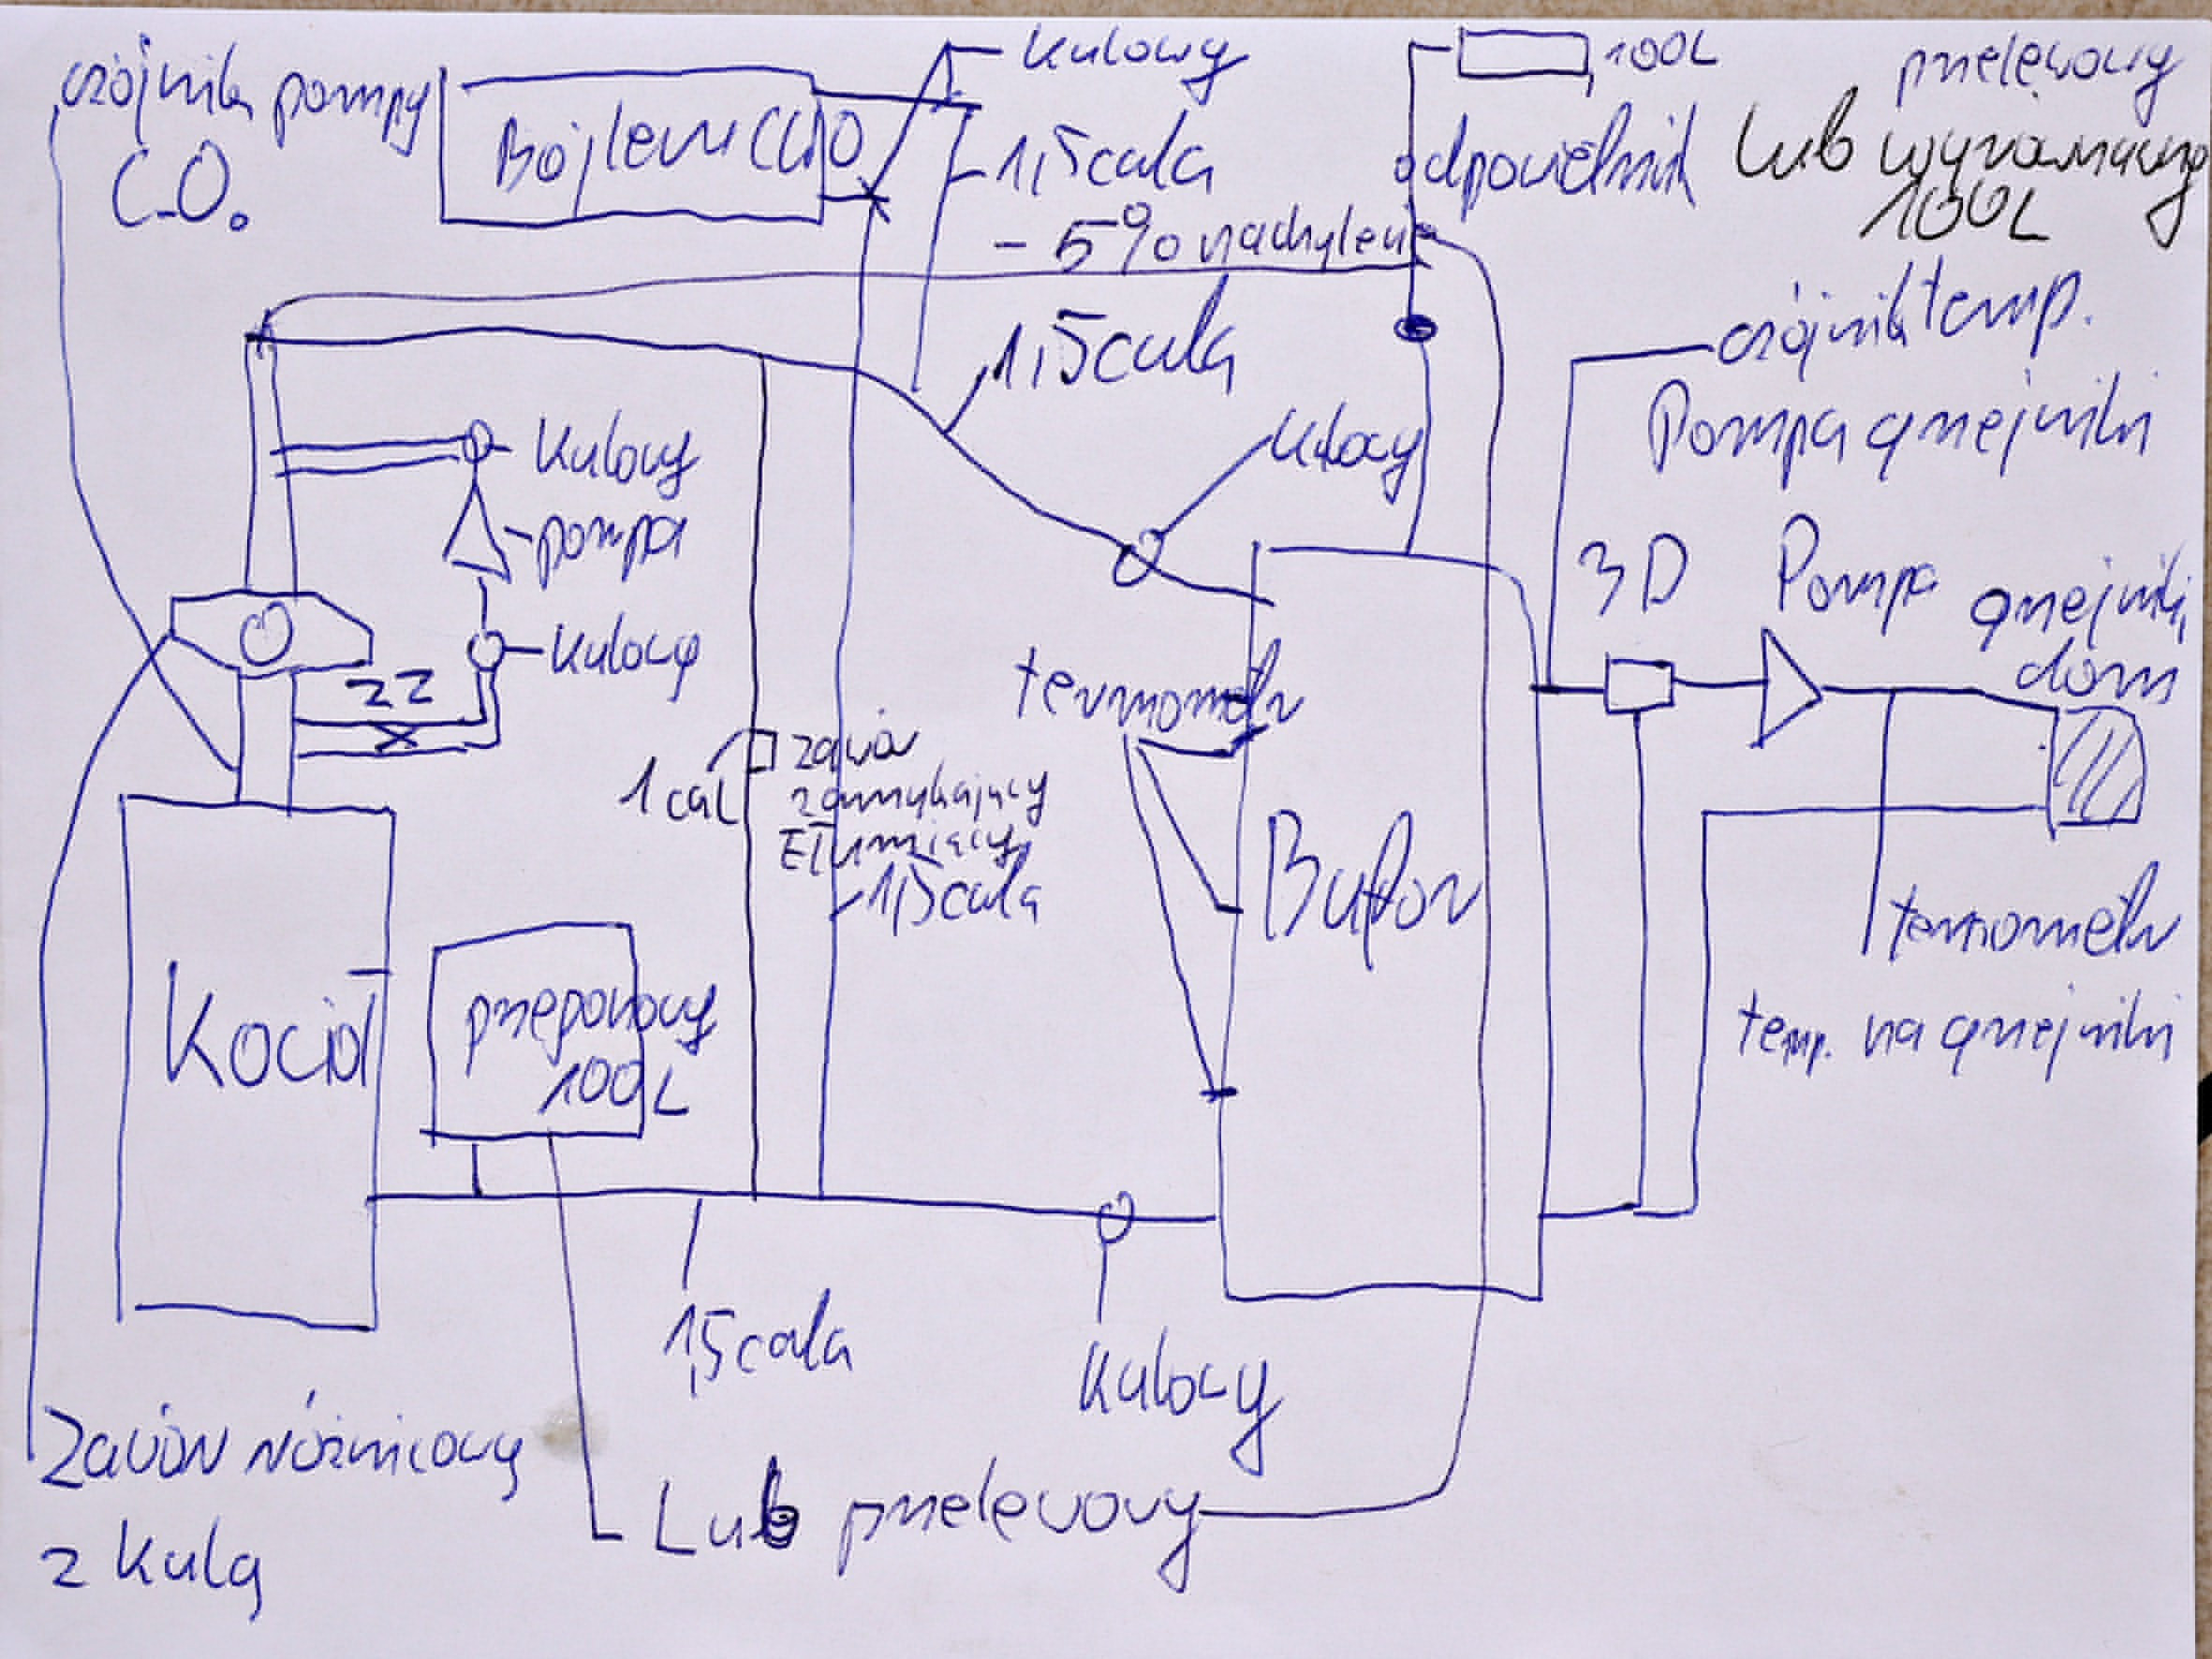 czójnik pompy
C.O.
Bojler CWO
Kulowy
1,5 cala
- 5% nachylenia
1,5 cala
100L
odpowietrznik
przelewowy
Lub wyrównawczy
100L
czójnik temp.
Pompa grzejniki
Kulowy
pompa
Kulowy
ZZ
Kulowy
3D
Pompa
grzejniki
dom
termometr
1 cal
zawór
zamykający
1,5 cala
Bufor
termometr
temp. na grzejniki
Kocioł
przeponowy
100L
1,5 cala
Kulowy
Zawór różnicowy
z Kulą
Lub przelewowy